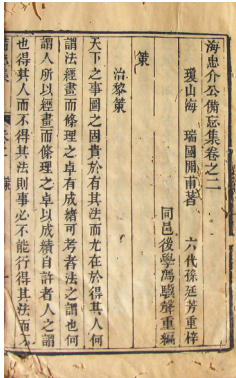 海忠介公備忘集卷之二
瓊山海 瑞國開甫著
六代孫廷芳重梓
同邑後學馮驥聲重編
策
治黎策
天下之事圖之固貴於有其法而尤在於得其人何
謂法經畫而條理之卓有成緒可考者法之謂也何
謂人所以經畫而條理之卓以成績自許者人之謂
也得其人而不得其法則事必不能行得其法而不